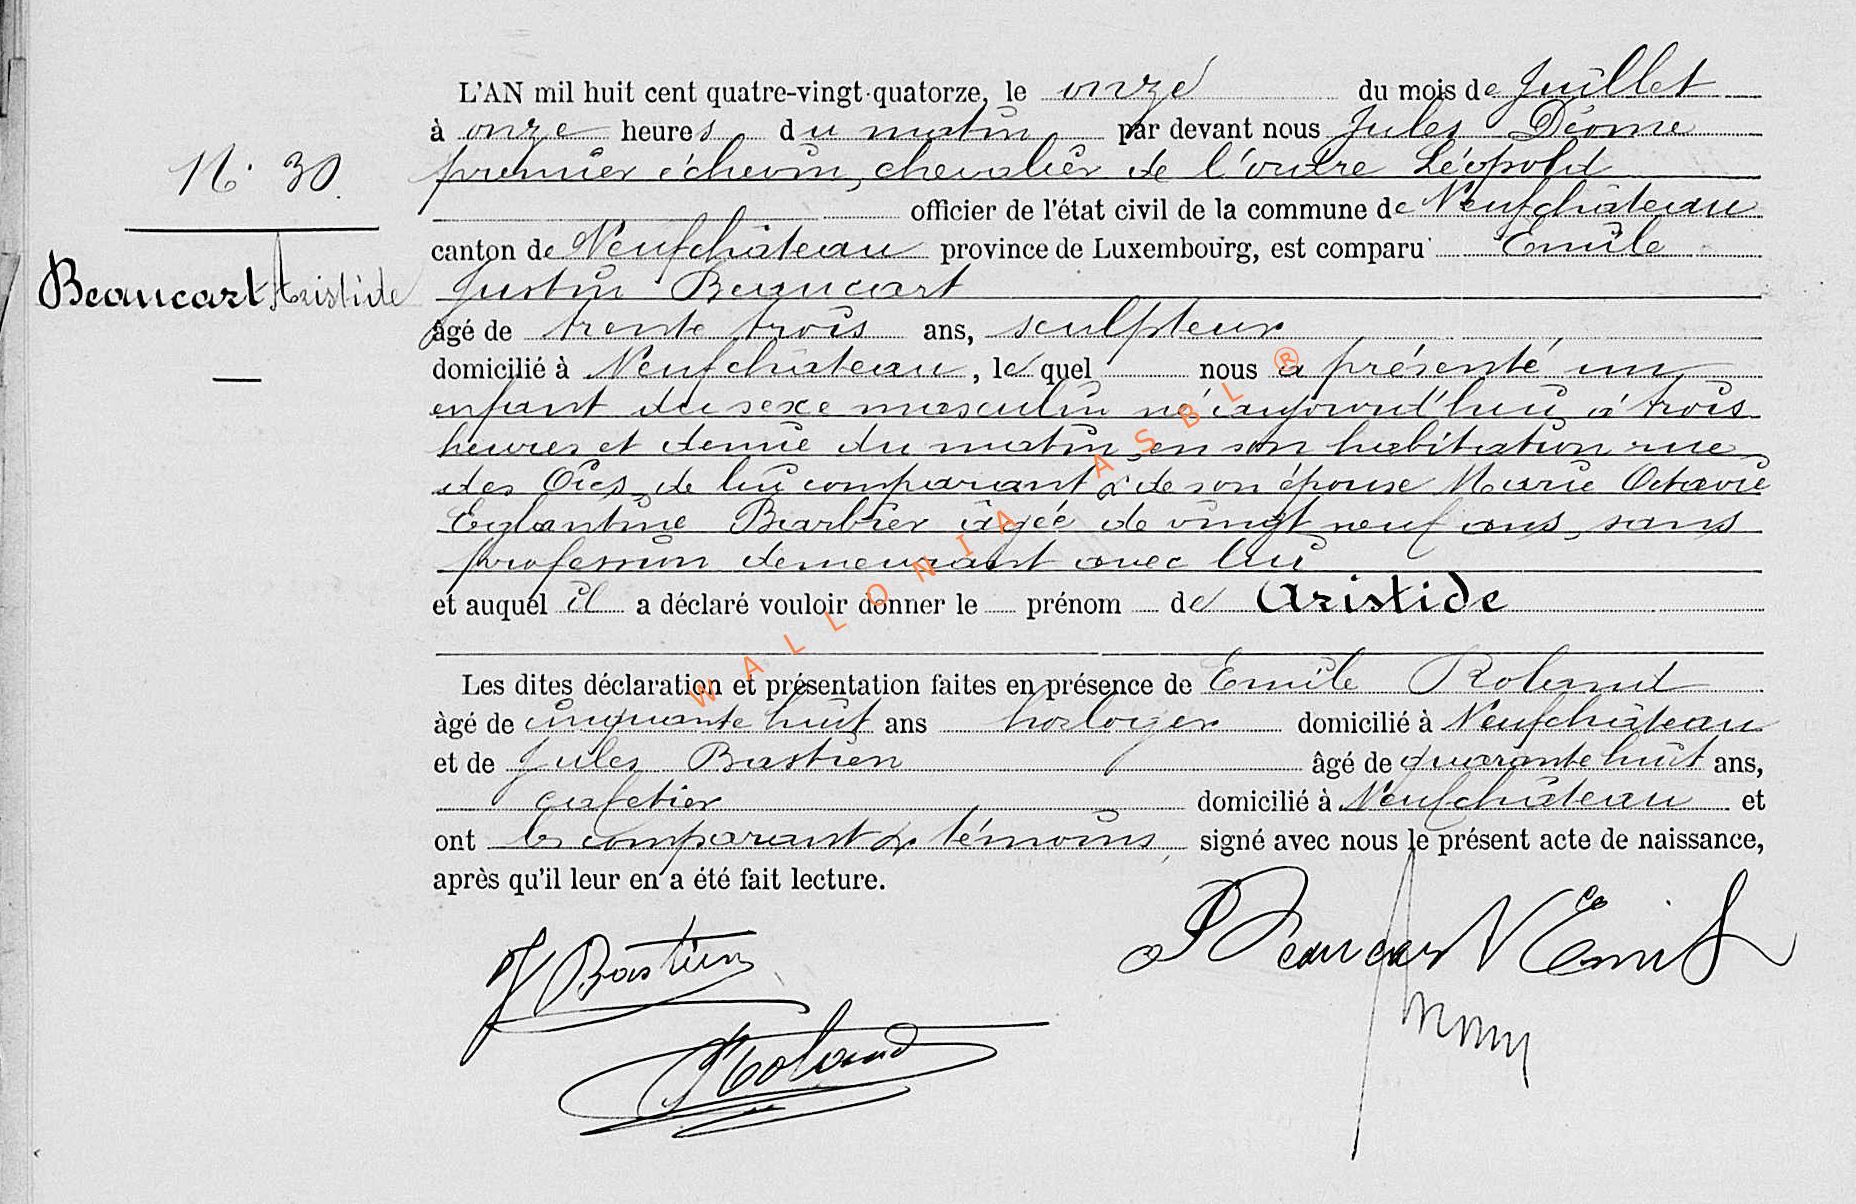 N° 30.
Beaucart Aristide
L'AN mil huit cent quatre-vingt-quatorze, le onze du mois de Juillet
à onze heures du matin par devant nous Jules Déome
premier échevin, chevalier de l'ordre Léopold
officier de l'état civil de la commune de Neufchâteau
canton de Neufchâteau province de Luxembourg, est comparu Emile
Justin Beaucart
âgé de trente trois ans, sculpteur
domicilié à Neufchâteau, le quel nous a présenté un
enfant du sexe masculin né aujourd'hui à trois
heures et demie du matin, en son habitation rue
des Oies, de lui comparant & de son épouse Marie Octavie
Eglantine Barbier âgée de vingt neuf ans, sans
profession demeurant avec lui
et auquel il a déclaré vouloir donner le prénom de Aristide
Les dites déclaration et présentation faites en présence de Emile Roland
âgé de cinquante huit ans horloger domicilié à Neufchâteau
et de Jules Bastien âgé de quarante huit ans,
cafetier domicilié à Neufchâteau et
ont les comparant & témoins, signé avec nous le présent acte de naissance,
après qu'il leur en a été fait lecture.
J Bastien
Beaucart Emile
Roland
WALLONIA ASBL ®